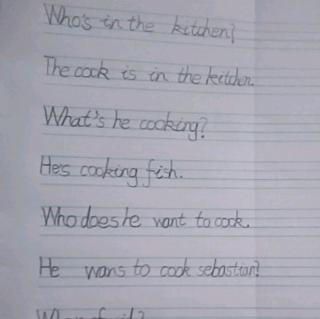 Who's in the kitchen?
The cook is in the kitchen.
What's he cooking?
He's cooking fish.
Who does he want to cook.
He wans to cook sebastian?